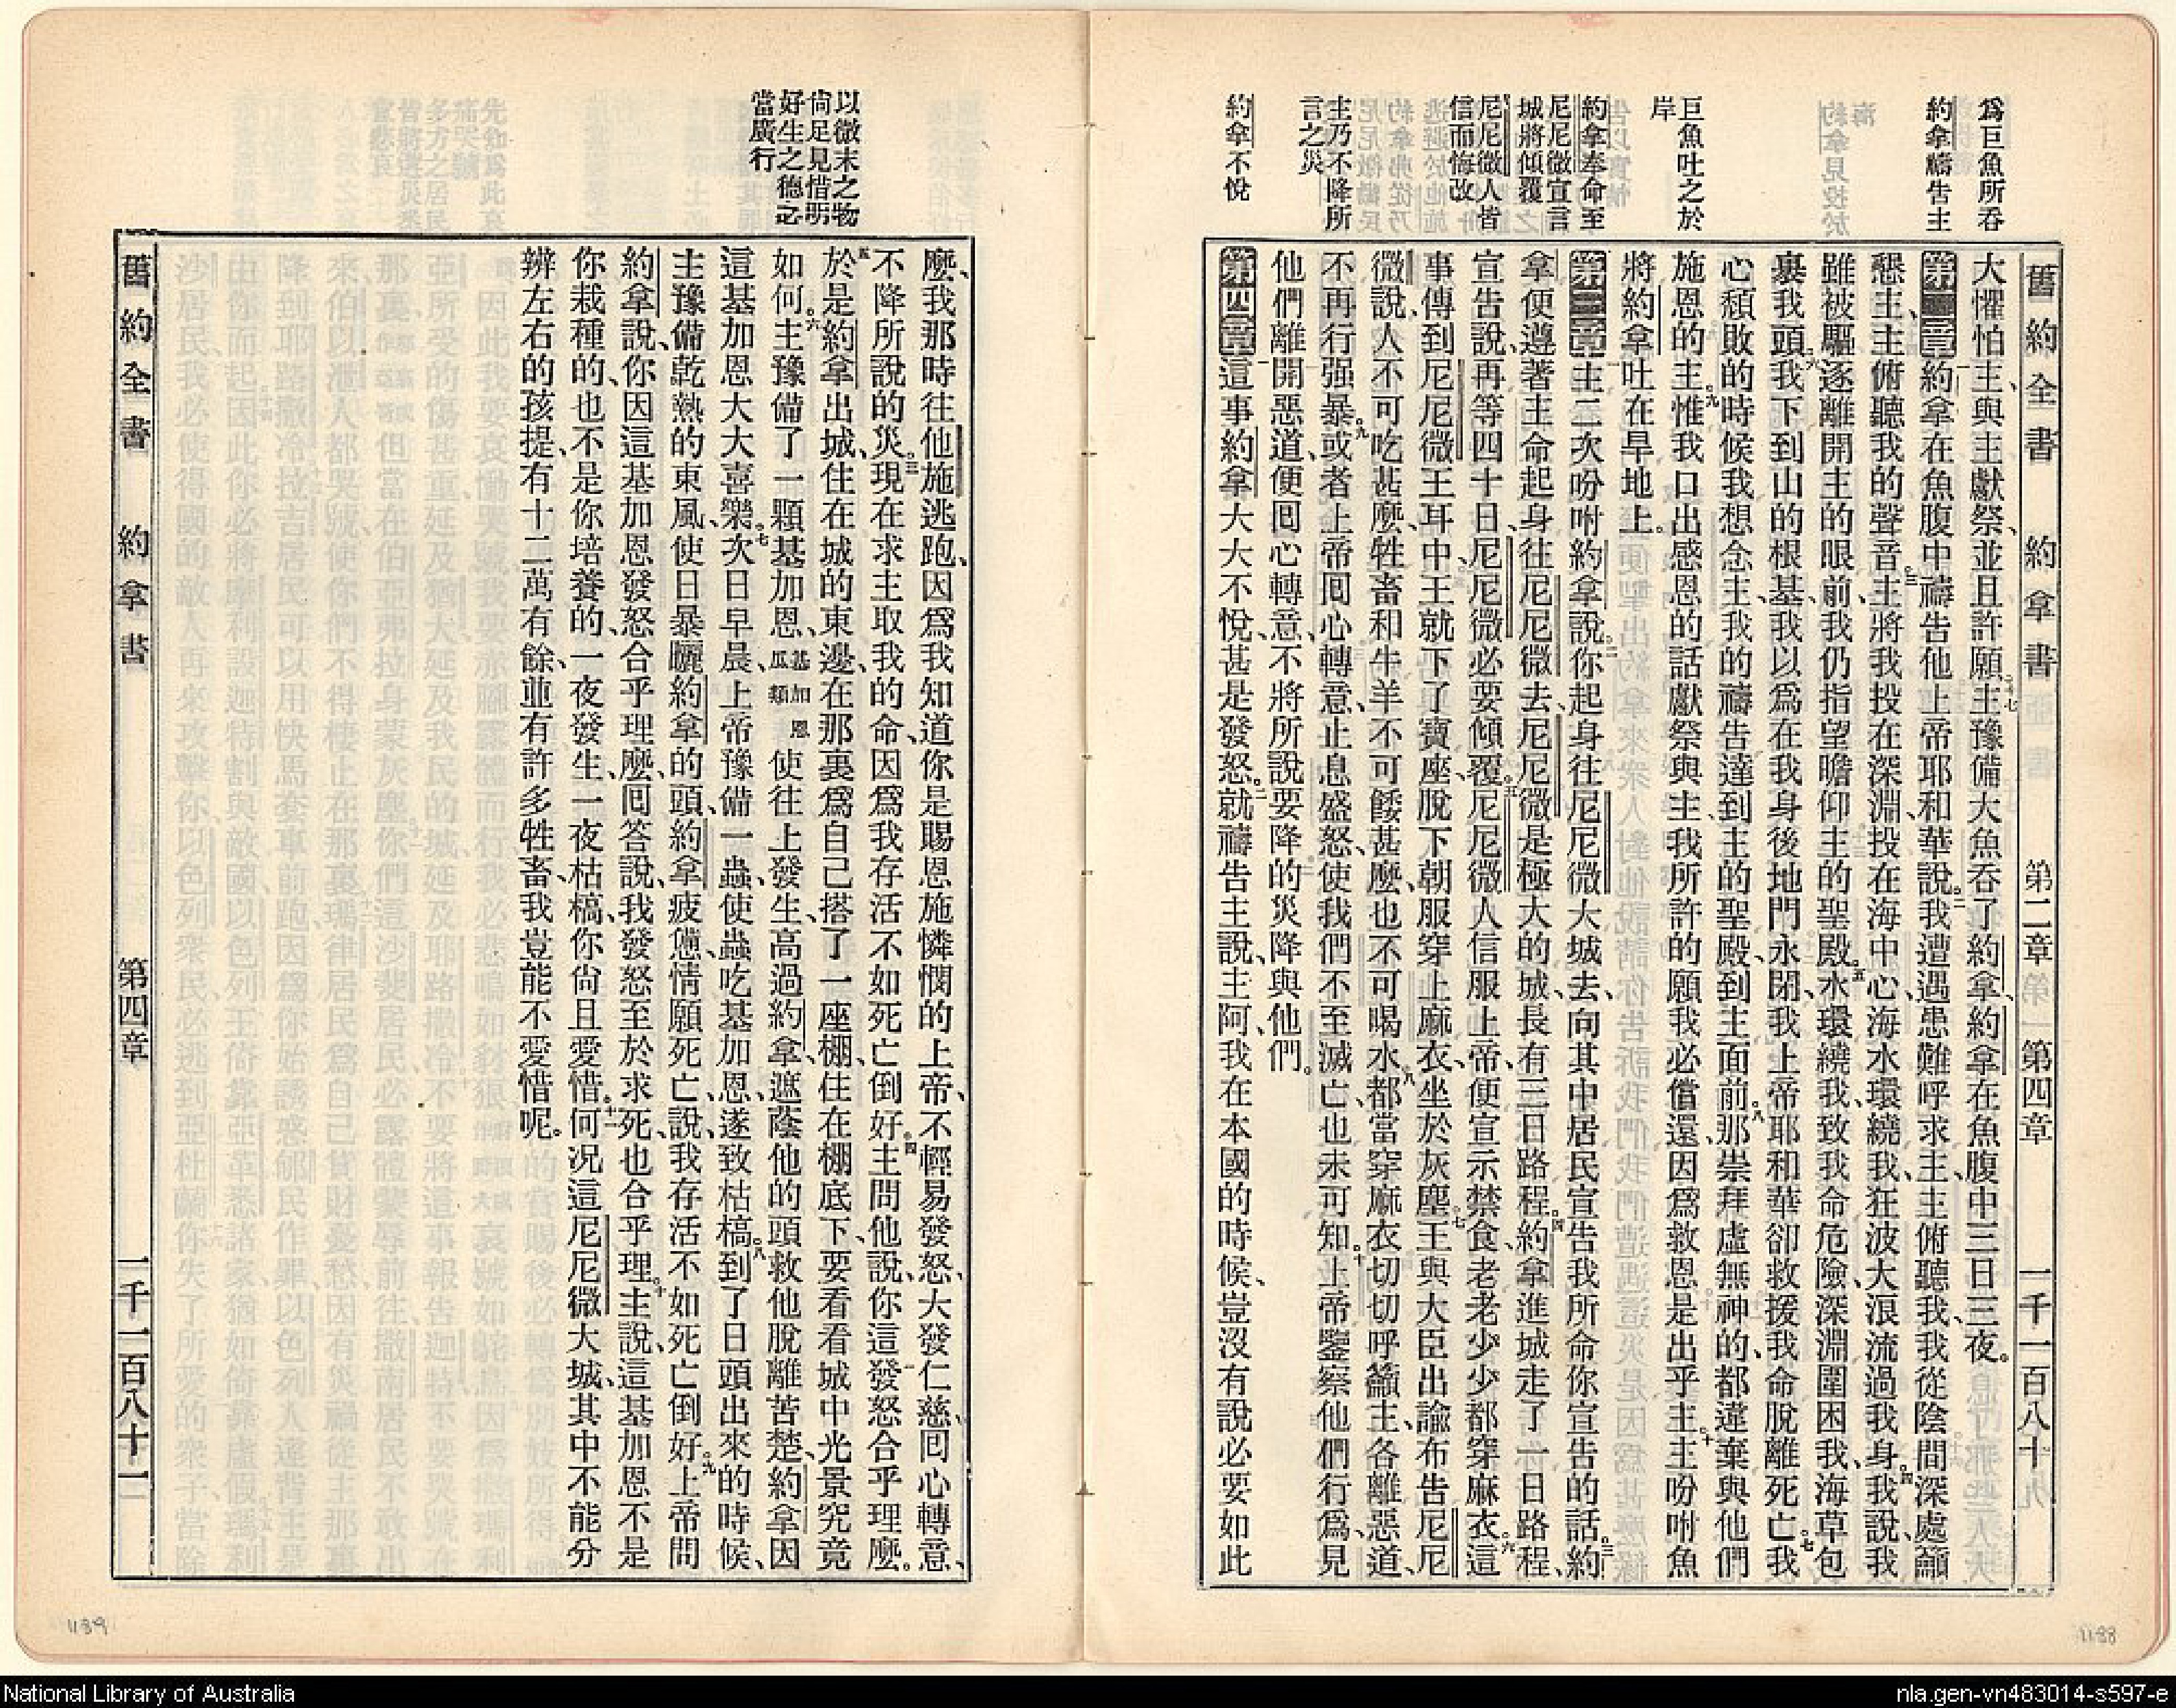 舊約全書 約拿書 第二章 第四章 一千一百八十
爲巨魚所吞
約拿禱告主
巨魚吐之於
岸
約拿奉命至
尼尼微宣言
城將傾覆
尼尼微人皆
信而悔改
主乃不降所
言之災
約拿不悅
大懼怕主、與主獻祭、並且許願、十七主豫備大魚吞了約拿、約拿在魚腹中三日三夜。
第二章一約拿在魚腹中禱告他上帝耶和華說、二我遭遇患難呼求主、主俯聽我、我從陰間深處籲
懇主、主俯聽我的聲音、三主將我投在深淵、投在海中心、海水環繞我、狂波大浪流過我身、四我說、我
雖被驅逐離開主的眼前、我仍指望瞻仰主的聖殿、五水環繞我、致我命危險、深淵圍困我、海草包
裹我頭、六我下到山的根基、我以爲在我身後地門永閉、我上帝耶和華卻救援我命脫離死亡、七我
心頹敗的時候我想念主、我的禱告達到主的聖殿、到主面前、八那崇拜虛無神的、都違棄與他們
施恩的主、九惟我口出感恩的話獻祭與主、我所許的願我必償還、因爲救恩是出乎主、十主吩咐魚
將約拿吐在旱地上。
第三章一主二次吩咐約拿說、二你起身往尼尼微大城去、向其中居民宣告我所命你宣告的話、三約
拿便遵著主命起身往尼尼微去、尼尼微是極大的城、長有三日路程、四約拿進城走了一日路程、
宣告說、再等四十日、尼尼微必要傾覆、五尼尼微人信服上帝、便宣示禁食、老老少少都穿麻衣、六這
事傳到尼尼微王耳中、王就下了寶座、脫下朝服穿上麻衣、坐於灰塵、七王與大臣出諭布告尼尼
微說、人不可吃甚麼、牲畜和牛羊不可餧甚麼、也不可喝水、八都當穿麻衣切切呼籲主、各離惡道、
不再行强暴、九或者上帝囘心轉意、止息盛怒、使我們不至滅亡、也未可知、十上帝鑒察他們行爲、見
他們離開惡道、便囘心轉意、不將所說要降的災降與他們。
第四章一這事約拿大大不悅、甚是發怒、二就禱告主說、主阿、我在本國的時候、豈沒有說必要如此
以微末之物
尙足見惜明
好生之德之
當廣行
麼、我那時往他施逃跑、因爲我知道你是賜恩施憐憫的上帝、不輕易發怒、大發仁慈、囘心轉意、
不降所說的災、三現在求主取我的命、因爲我存活不如死亡倒好。四主問他說、你這發怒合乎理麼。
五於是約拿出城、住在城的東邊、在那裏爲自己搭了一座棚、住在棚底下、要看看城中光景究竟
如何。六主豫備了一顆基加恩、基加恩瓜類使往上發生、高過約拿、遮蔭他的頭、救他脫離苦楚、約拿因
這基加恩大大喜樂。七次日早晨、上帝豫備一蟲、使蟲吃基加恩、遂致枯槁。八到了日頭出來的時候、
主豫備乾熱的東風、使日暴曬約拿的頭、約拿疲憊、情願死亡、說、我存活不如死亡倒好。九上帝問
約拿說、你因這基加恩發怒合乎理麼、囘答說、我發怒至於求死也合乎理。十主說、這基加恩不是
你栽種的、也不是你培養的、一夜發生、一夜枯槁、你尙且愛惜。十一何况這尼尼微大城、其中不能分
辨左右的孩提、有十二萬有餘、並有許多牲畜、我豈能不愛惜呢。
舊約全書 約拿書 第四章 一千一百八十一
1189
1188
National Library of Australia
nla.gen-vn483014-s597-e